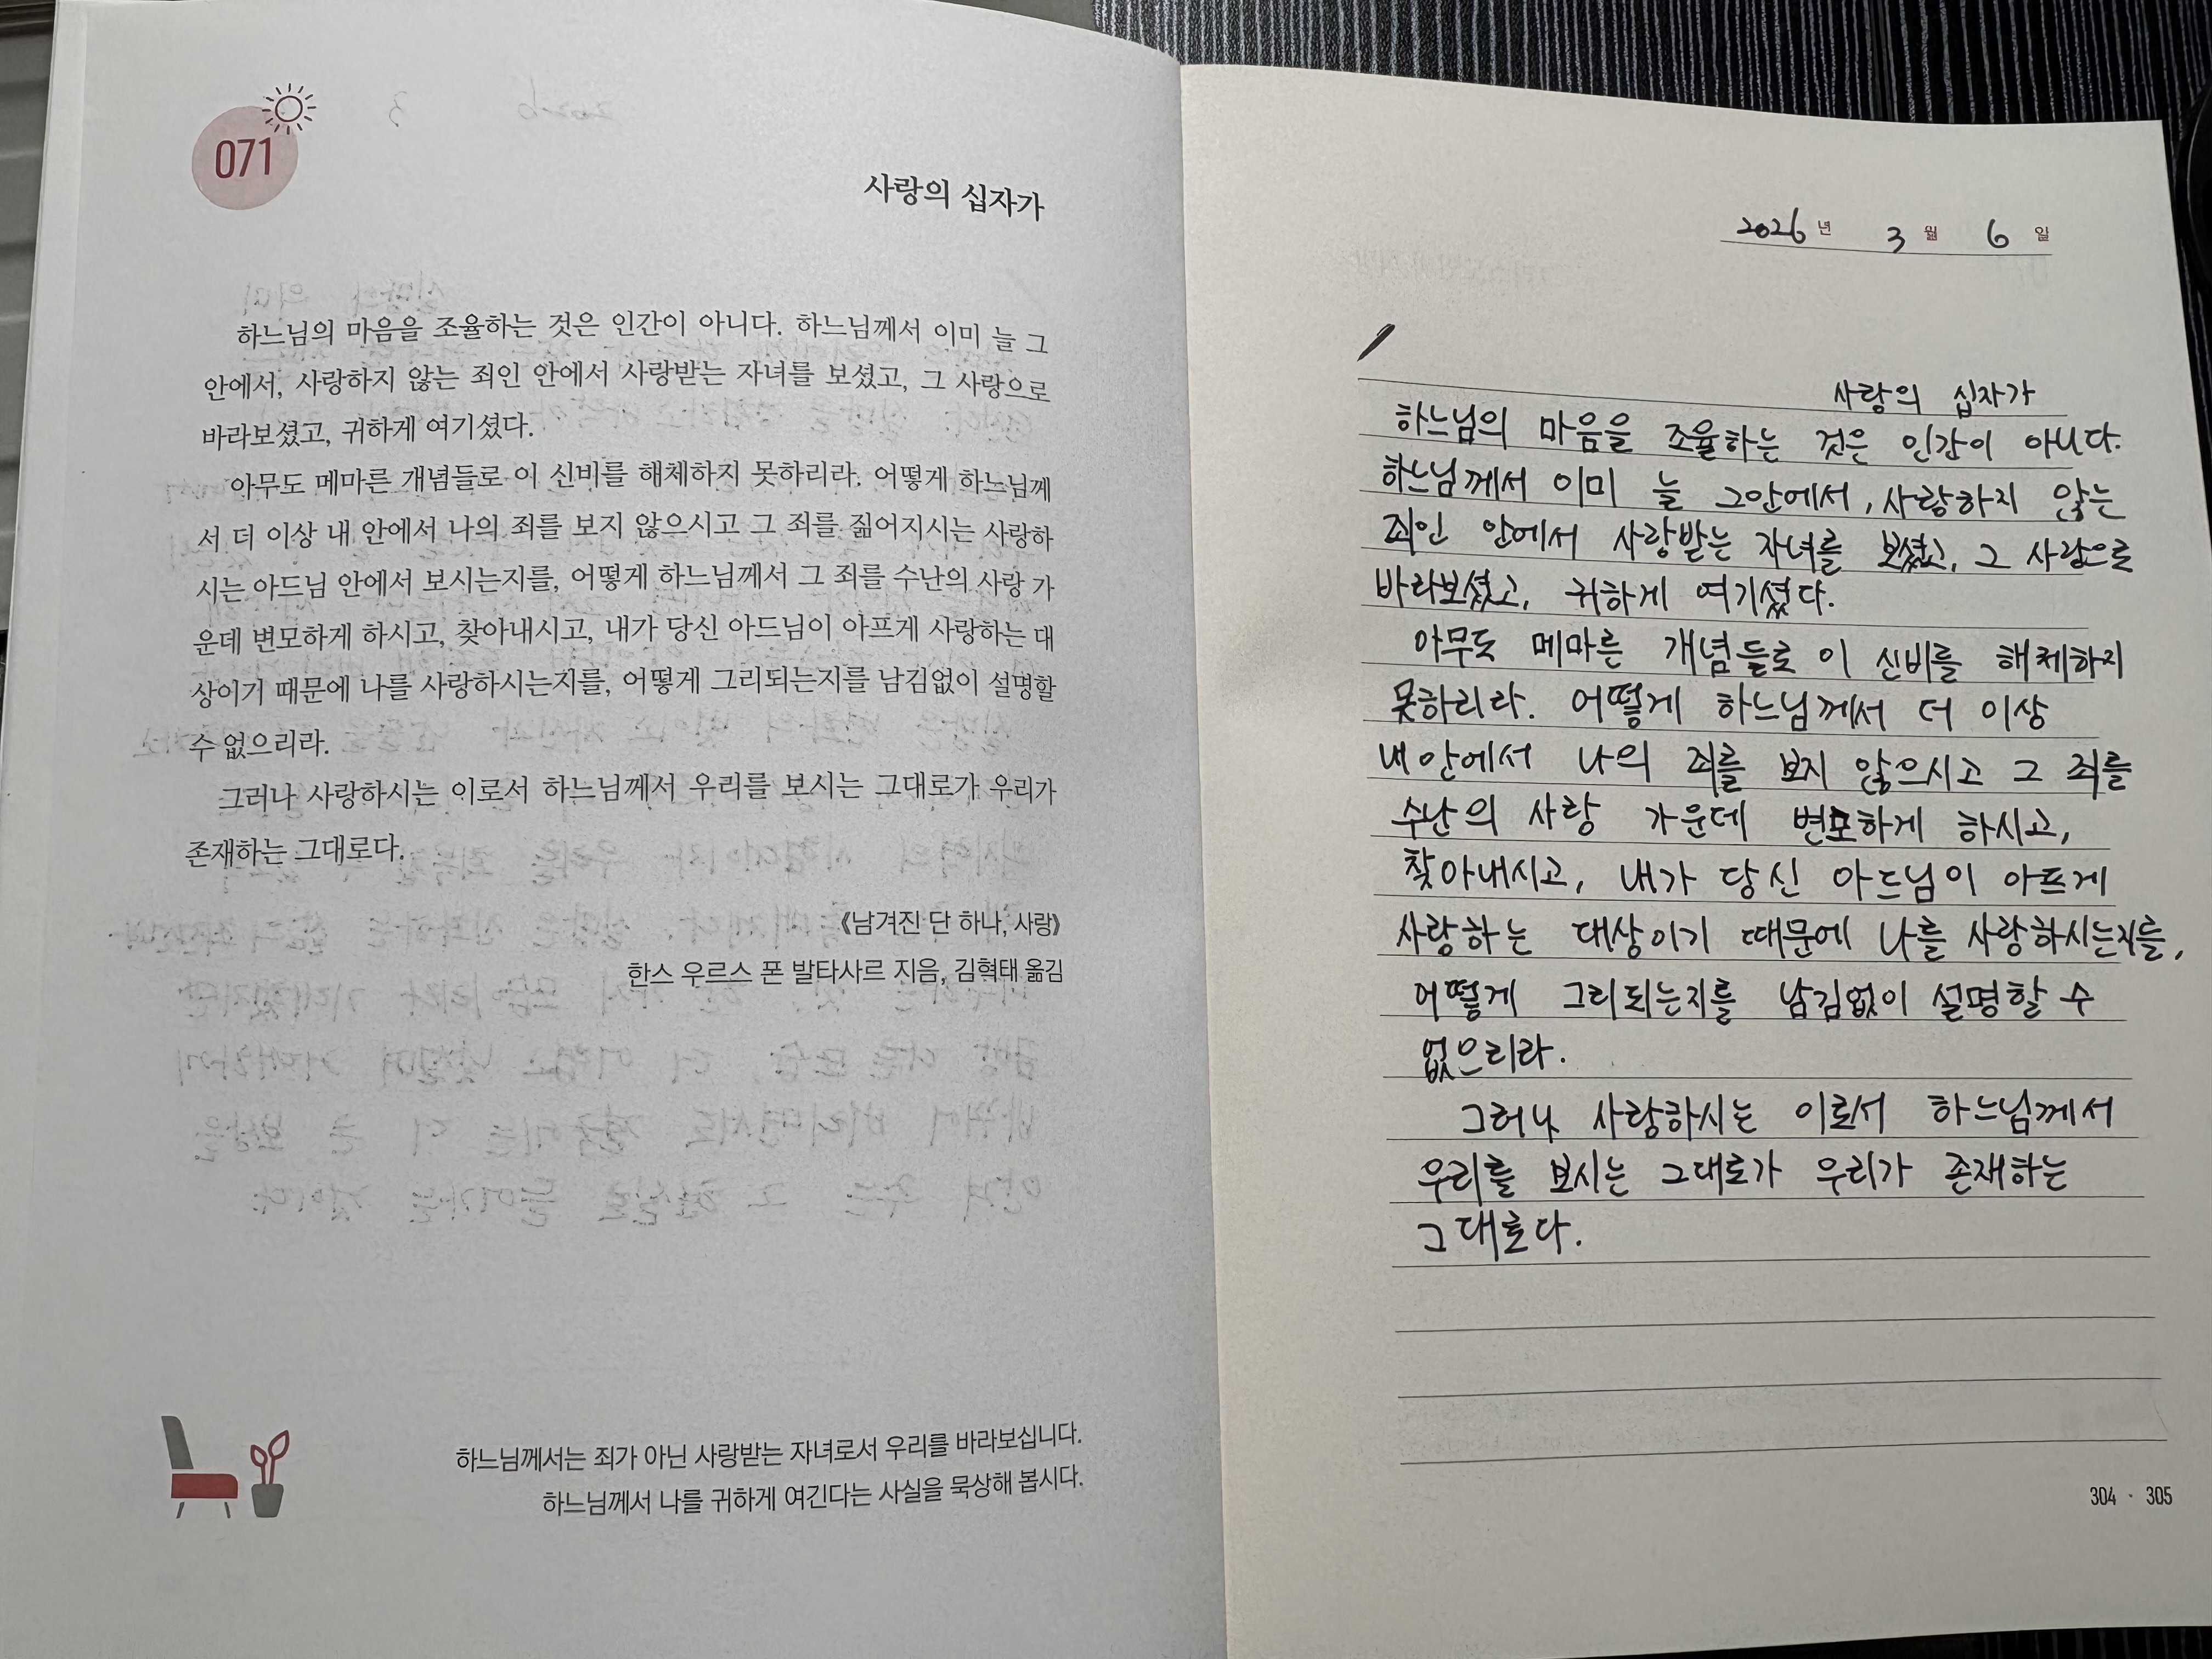 071
사랑의 십자가
하느님의 마음을 조율하는 것은 인간이 아니다. 하느님께서 이미 늘 그
안에서, 사랑하지 않는 죄인 안에서 사랑받는 자녀를 보셨고, 그 사랑으로
바라보셨고, 귀하게 여기셨다.
아무도 메마른 개념들로 이 신비를 해체하지 못하리라. 어떻게 하느님께
서 더 이상 내 안에서 나의 죄를 보지 않으시고 그 죄를 짊어지시는 사랑하
시는 아드님 안에서 보시는지를, 어떻게 하느님께서 그 죄를 수난의 사랑 가
운데 변모하게 하시고, 찾아내시고, 내가 당신 아드님이 아프게 사랑하는 대
상이기 때문에 나를 사랑하시는지를, 어떻게 그리되는지를 남김없이 설명할
수 없으리라.
그러나 사랑하시는 이로서 하느님께서 우리를 보시는 그대로가 우리가
존재하는 그대로다.
《남겨진 단 하나, 사랑》
한스 우르스 폰 발타사르 지음, 김혁태 옮김
하느님께서는 죄가 아닌 사랑받는 자녀로서 우리를 바라보십니다.
하느님께서 나를 귀하게 여긴다는 사실을 묵상해 봅시다.
2026 년 3 월 6 일
사랑의 십자가
하느님의 마음을 조율하는 것은 인간이 아니다.
하느님께서 이미 늘 그안에서, 사랑하지 않는
죄인 안에서 사랑받는 자녀를 보셨고, 그 사랑으로
바라보셨고, 귀하게 여기셨다.
아무도 메마른 개념들로 이 신비를 해체하지
못하리라. 어떻게 하느님께서 더 이상
내 안에서 나의 죄를 보지 않으시고 그 죄를
수난의 사랑 가운데 변모하게 하시고,
찾아내시고, 내가 당신 아드님이 아프게
사랑하는 대상이기 때문에 나를 사랑하시는지를,
어떻게 그리되는지를 남김없이 설명할 수
없으리라.
그러나 사랑하시는 이로서 하느님께서
우리를 보시는 그대로가 우리가 존재하는
그대로다.
304 · 305